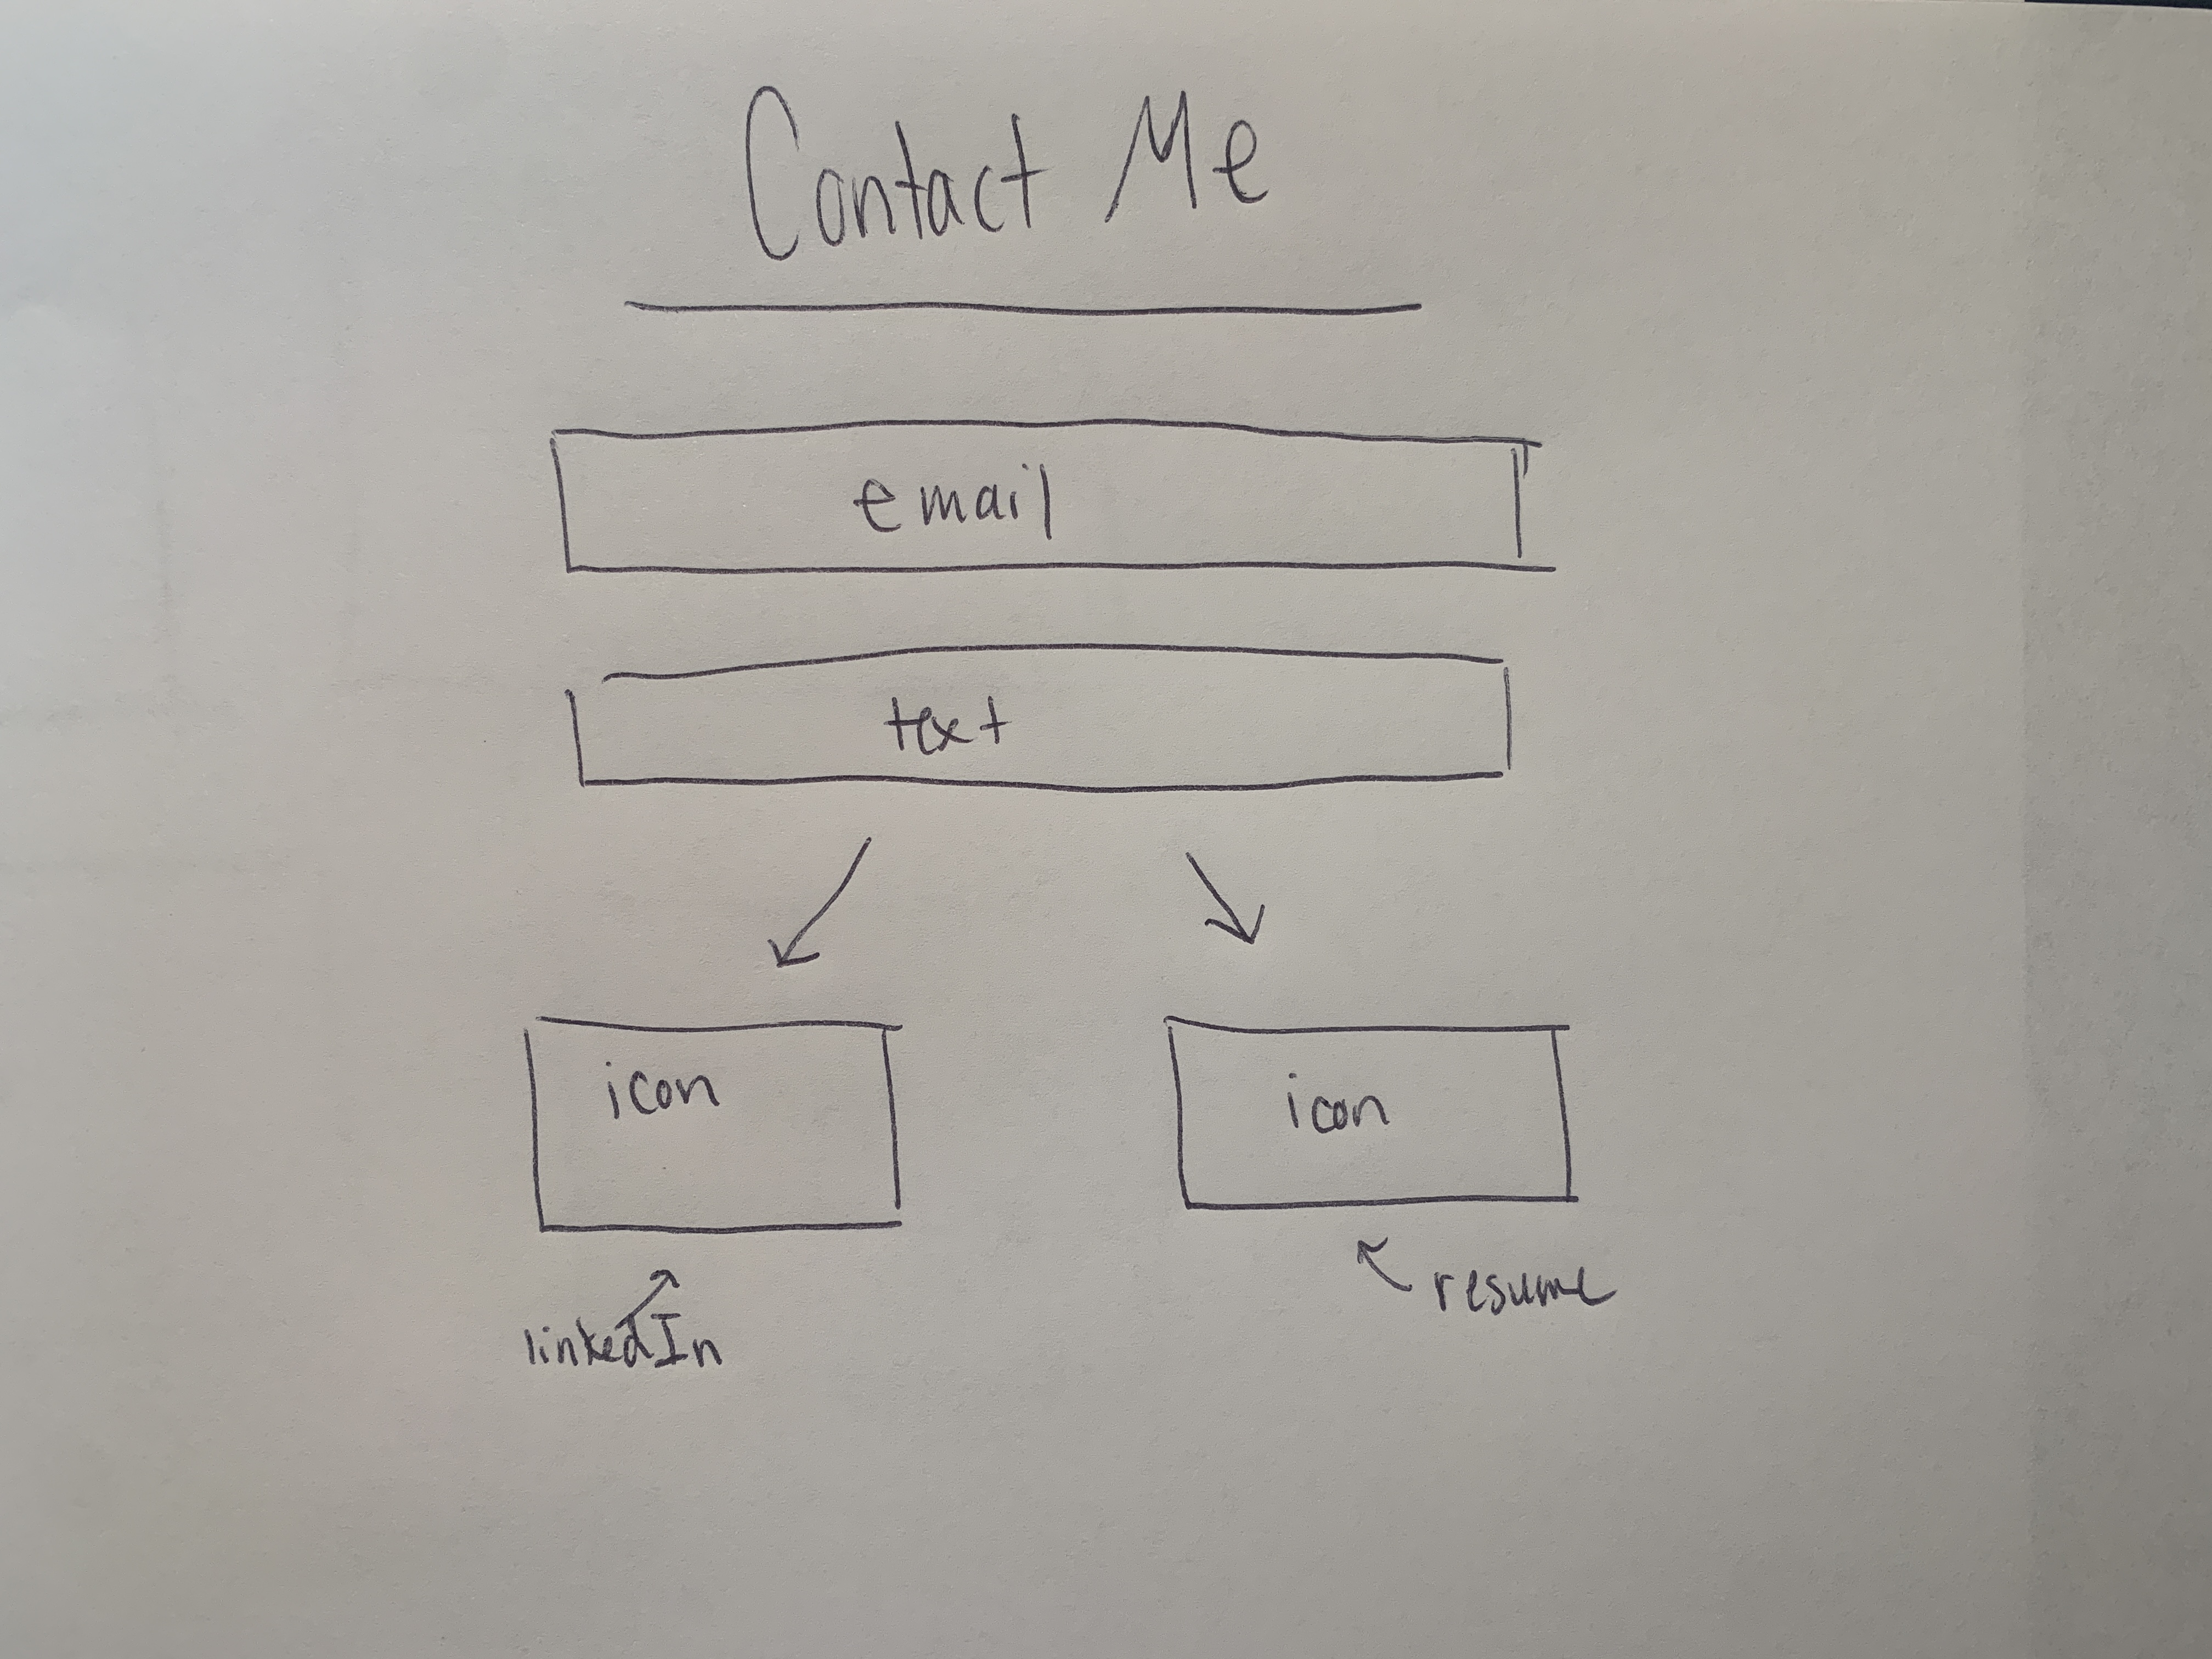 Contact Me
email
text
icon
icon
linkedIn
resume